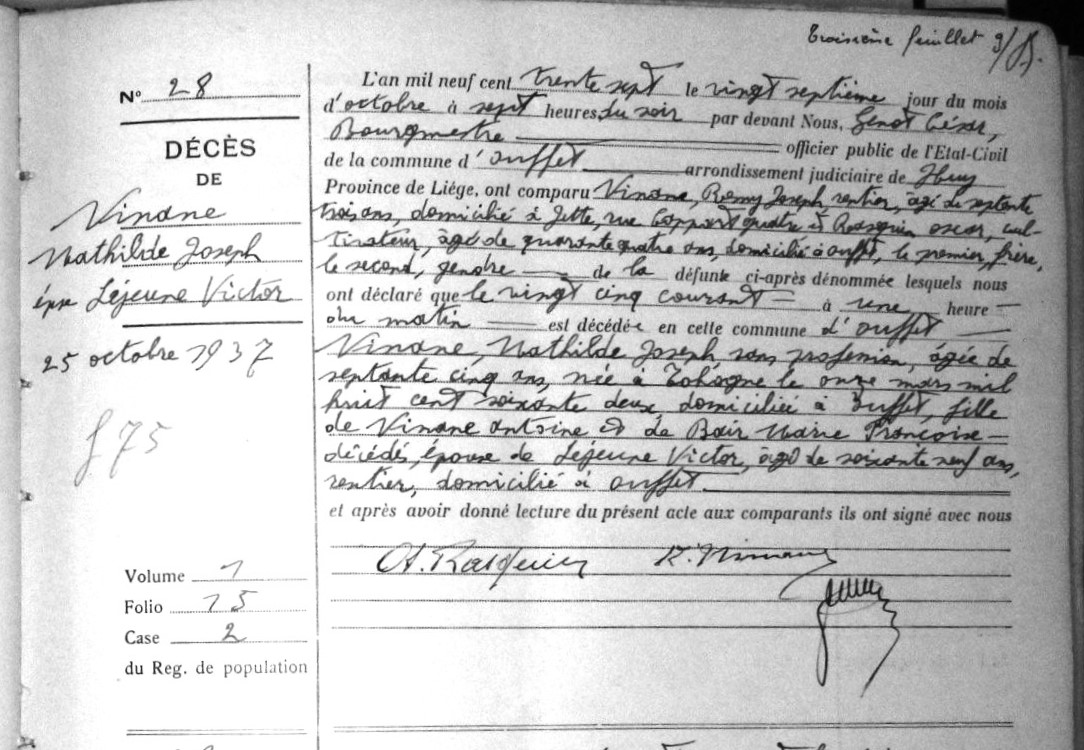 troisième feuillet
N° 28
DÉCÈS
DE
Vinane
Mathilde Joseph
épse Lejeune Victor
25 octobre 1937
f 75
Volume 1
Folio 15
Case 2
du Reg. de population
L'an mil neuf cent trente sept le vingt septième jour du mois
d'octobre à sept heures du soir par devant Nous, Genot César,
Bourgmestre officier public de l'Etat-Civil
de la commune d'ouffet arrondissement judiciaire de Huy
Province de Liége, ont comparu Vinane, Remy Joseph rentier, agé de septante
trois ans, domicilié à Jette, rue quatre et Rasquin oscar, cul-
tivateur, âgé de quarante quatre ans, domicilié à ouffet, le premier, frère,
le second, gendre de la défunte ci-après dénommée lesquels nous
ont déclaré que le vingt cinq courant à une heure
du matin est décédée en cette commune d'ouffet
Vinane, Mathilde Joseph, sans profession, âgée de
septante cinq ans, née à Tohogne le onze mars mil
huit cent soixante deux, domiciliée à Ouffet, fille
de Vinane antoine et de Bair Marie Françoise
décédés, épouse de Lejeune Victor, âgé de soixante neuf ans,
rentier, domicilié à ouffet
et après avoir donné lecture du présent acte aux comparants ils ont signé avec nous
O. Rasquin R. Vinane